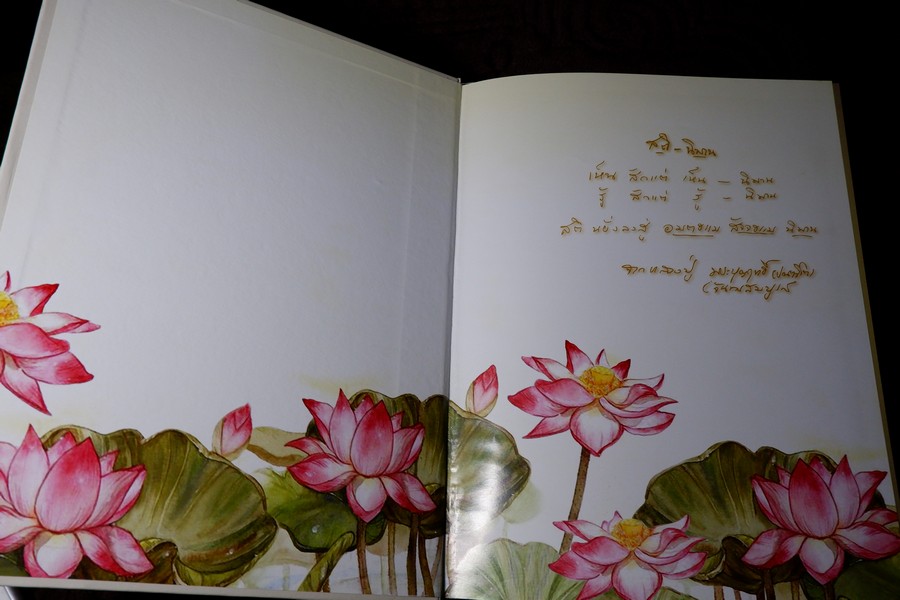 สติ - นิพาน
เห็น สักแต่ เห็น - นิพาน
รู้ สักแต่ รู้ - นิพาน
สติ หยั่งลงสู่ อมตธรรม สัจธรรม นิพาน
จากหลวงปู่